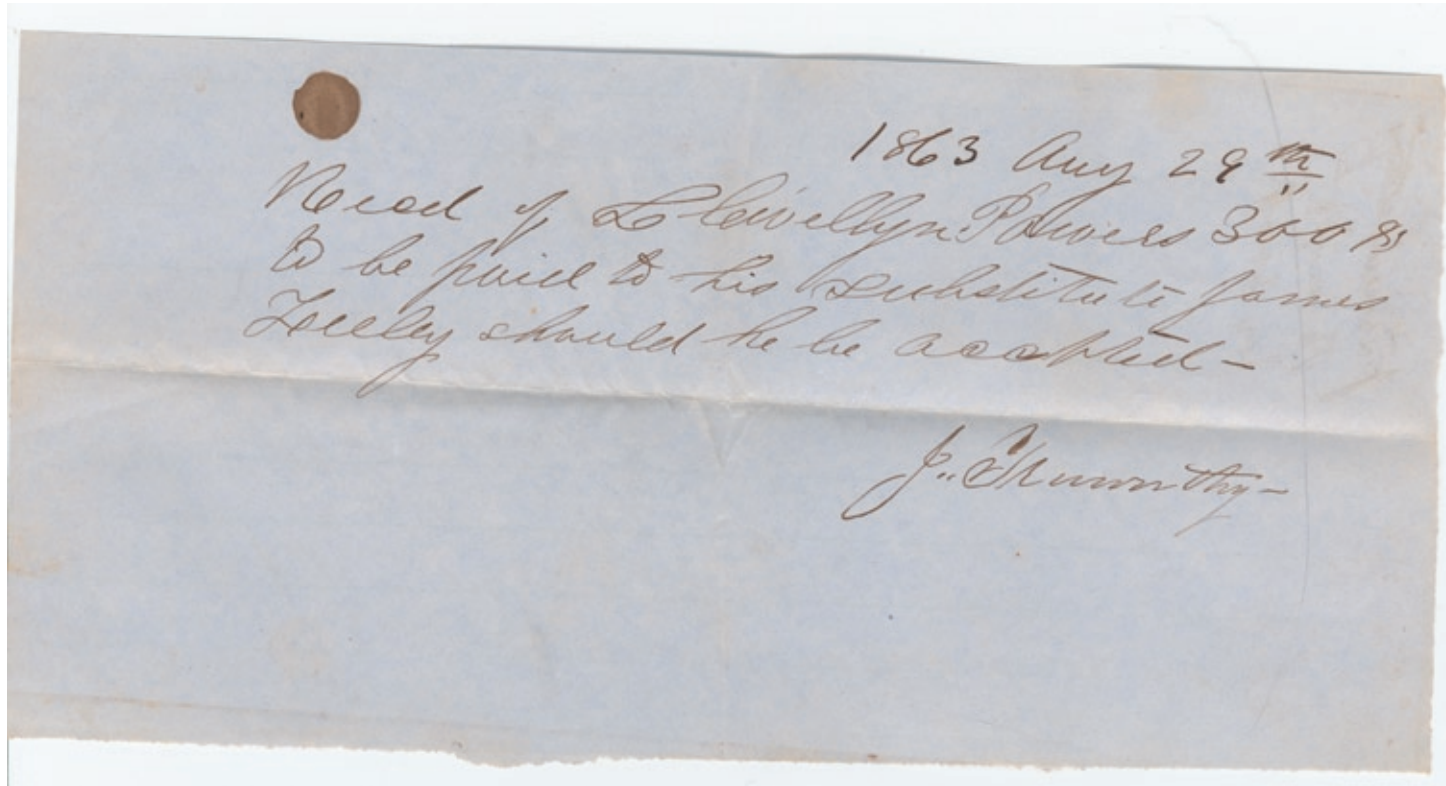 1863 Aug 29th
Recd of Llewellyn Powers 300 $s
to be paid to his substitute James
should he be accepted-
J..